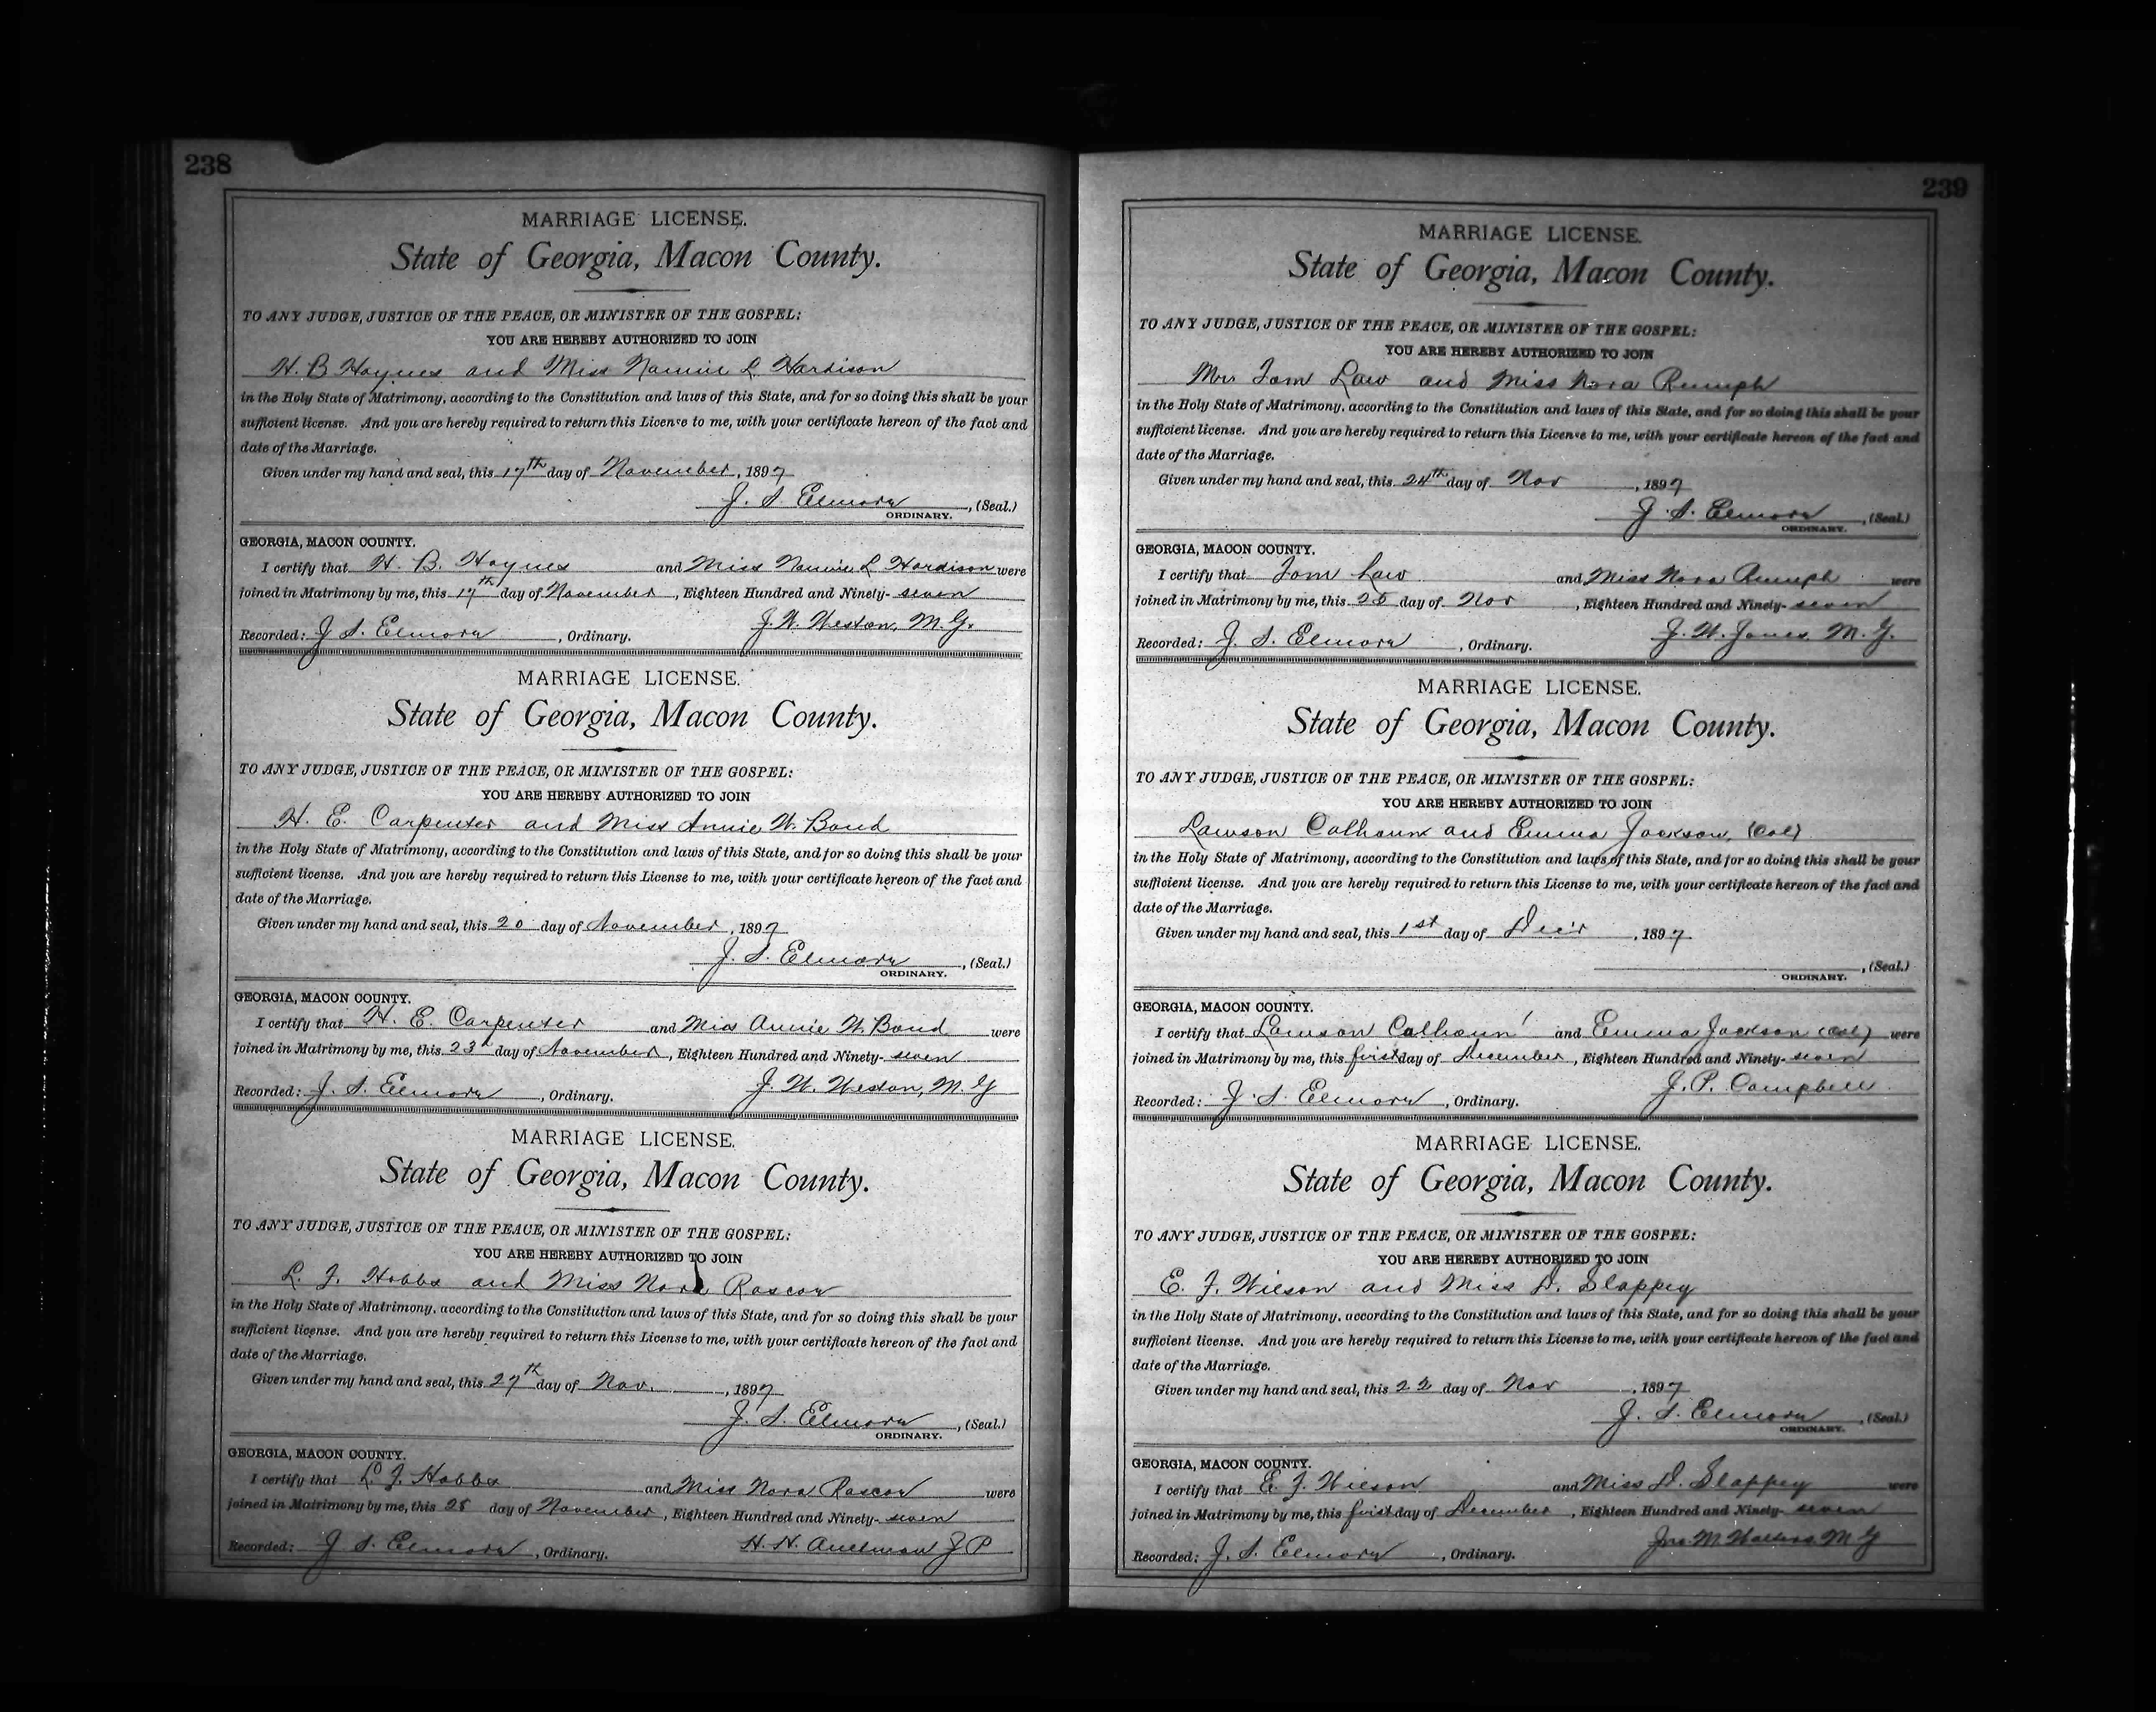 238
MARRIAGE LICENSE.
State of Georgia, Macon County.
TO ANY JUDGE, JUSTICE OF THE PEACE, OR MINISTER OF THE GOSPEL:
YOU ARE HEREBY AUTHORIZED TO JOIN
H. B Haynes and Miss Nannie L Hardison
in the Holy State of Matrimony, according to the Constitution and laws of this State, and for so doing this shall be your
sufficient license. And you are hereby required to return this License to me, with your certificate hereon of the fact and
date of the Marriage.
Given under my hand and seal, this 17th day of November, 1897
J. S. Elmore, (Seal.)
ORDINARY.
GEORGIA, MACON COUNTY.
I certify that H. B. Haynes and Miss Nannie L Hardison were
joined in Matrimony by me, this 17th day of November, Eighteen Hundred and Ninety-seven
Recorded: J S. Elmore, Ordinary. J. W. Weston, M. G.
MARRIAGE LICENSE.
State of Georgia, Macon County.
TO ANY JUDGE, JUSTICE OF THE PEACE, OR MINISTER OF THE GOSPEL:
YOU ARE HEREBY AUTHORIZED TO JOIN
H. E. Carpenter and Miss Annie W. Bond
in the Holy State of Matrimony, according to the Constitution and laws of this State, and for so doing this shall be your
sufficient license. And you are hereby required to return this License to me, with your certificate hereon of the fact and
date of the Marriage.
Given under my hand and seal, this 20 day of November, 1897
J. S. Elmore, (Seal.)
ORDINARY.
GEORGIA, MACON COUNTY.
I certify that H. E. Carpenter and Miss Annie W. Bond were
joined in Matrimony by me, this 23d day of November, Eighteen Hundred and Ninety-seven
Recorded: J. S. Elmore, Ordinary. J. W. Weston, M. G
MARRIAGE LICENSE.
State of Georgia, Macon County.
TO ANY JUDGE, JUSTICE OF THE PEACE, OR MINISTER OF THE GOSPEL:
YOU ARE HEREBY AUTHORIZED TO JOIN
L. J. Hobbs and Miss Nora Rascoe
in the Holy State of Matrimony, according to the Constitution and laws of this State, and for so doing this shall be your
sufficient license. And you are hereby required to return this License to me, with your certificate hereon of the fact and
date of the Marriage.
Given under my hand and seal, this 27th day of Nov., 1897
J. S. Elmore, (Seal.)
ORDINARY.
GEORGIA, MACON COUNTY.
I certify that L J. Hobbs and Miss Nora Rascoe were
joined in Matrimony by me, this 28 day of November, Eighteen Hundred and Ninety-seven
Recorded: J S. Elmore, Ordinary. H. H. Aultman J P
239
MARRIAGE LICENSE.
State of Georgia, Macon County.
TO ANY JUDGE, JUSTICE OF THE PEACE, OR MINISTER OF THE GOSPEL:
YOU ARE HEREBY AUTHORIZED TO JOIN
Tom Law and Miss Nora Rumph
in the Holy State of Matrimony, according to the Constitution and laws of this State, and for so doing this shall be your
sufficient license. And you are hereby required to return this License to me, with your certificate hereon of the fact and
date of the Marriage.
Given under my hand and seal, this 24th day of Nov, 1897
J. S. Elmore, (Seal.)
ORDINARY.
GEORGIA, MACON COUNTY.
I certify that Tom Law and Miss Nora Rumph were
joined in Matrimony by me, this 25 day of Nov, Eighteen Hundred and Ninety-seven
Recorded: J. S. Elmore, Ordinary. J. W. Jones M. G.
MARRIAGE LICENSE.
State of Georgia, Macon County.
TO ANY JUDGE, JUSTICE OF THE PEACE, OR MINISTER OF THE GOSPEL:
YOU ARE HEREBY AUTHORIZED TO JOIN
Lawson Calhoun and Emma Jackson, (Col)
in the Holy State of Matrimony, according to the Constitution and laws of this State, and for so doing this shall be your
sufficient license. And you are hereby required to return this License to me, with your certificate hereon of the fact and
date of the Marriage.
Given under my hand and seal, this 1st day of Dec'r, 1897
, (Seal.)
ORDINARY.
GEORGIA, MACON COUNTY.
I certify that Lawson Calhoun and Emma Jackson (Col) were
joined in Matrimony by me, this first day of December, Eighteen Hundred and Ninety-seven
Recorded: J. S. Elmore, Ordinary. J. P. Campbell
MARRIAGE LICENSE.
State of Georgia, Macon County.
TO ANY JUDGE, JUSTICE OF THE PEACE, OR MINISTER OF THE GOSPEL:
YOU ARE HEREBY AUTHORIZED TO JOIN
E. J. Wilson and Miss D. Slappey
in the Holy State of Matrimony, according to the Constitution and laws of this State, and for so doing this shall be your
sufficient license. And you are hereby required to return this License to me, with your certificate hereon of the fact and
date of the Marriage.
Given under my hand and seal, this 22 day of Nov, 1897
J. S. Elmore, (Seal.)
ORDINARY.
GEORGIA, MACON COUNTY.
I certify that E. J. Wilson and Miss D. Slappey were
joined in Matrimony by me, this first day of December, Eighteen Hundred and Ninety-seven
Recorded: J. S. Elmore, Ordinary. Jno. M. M G